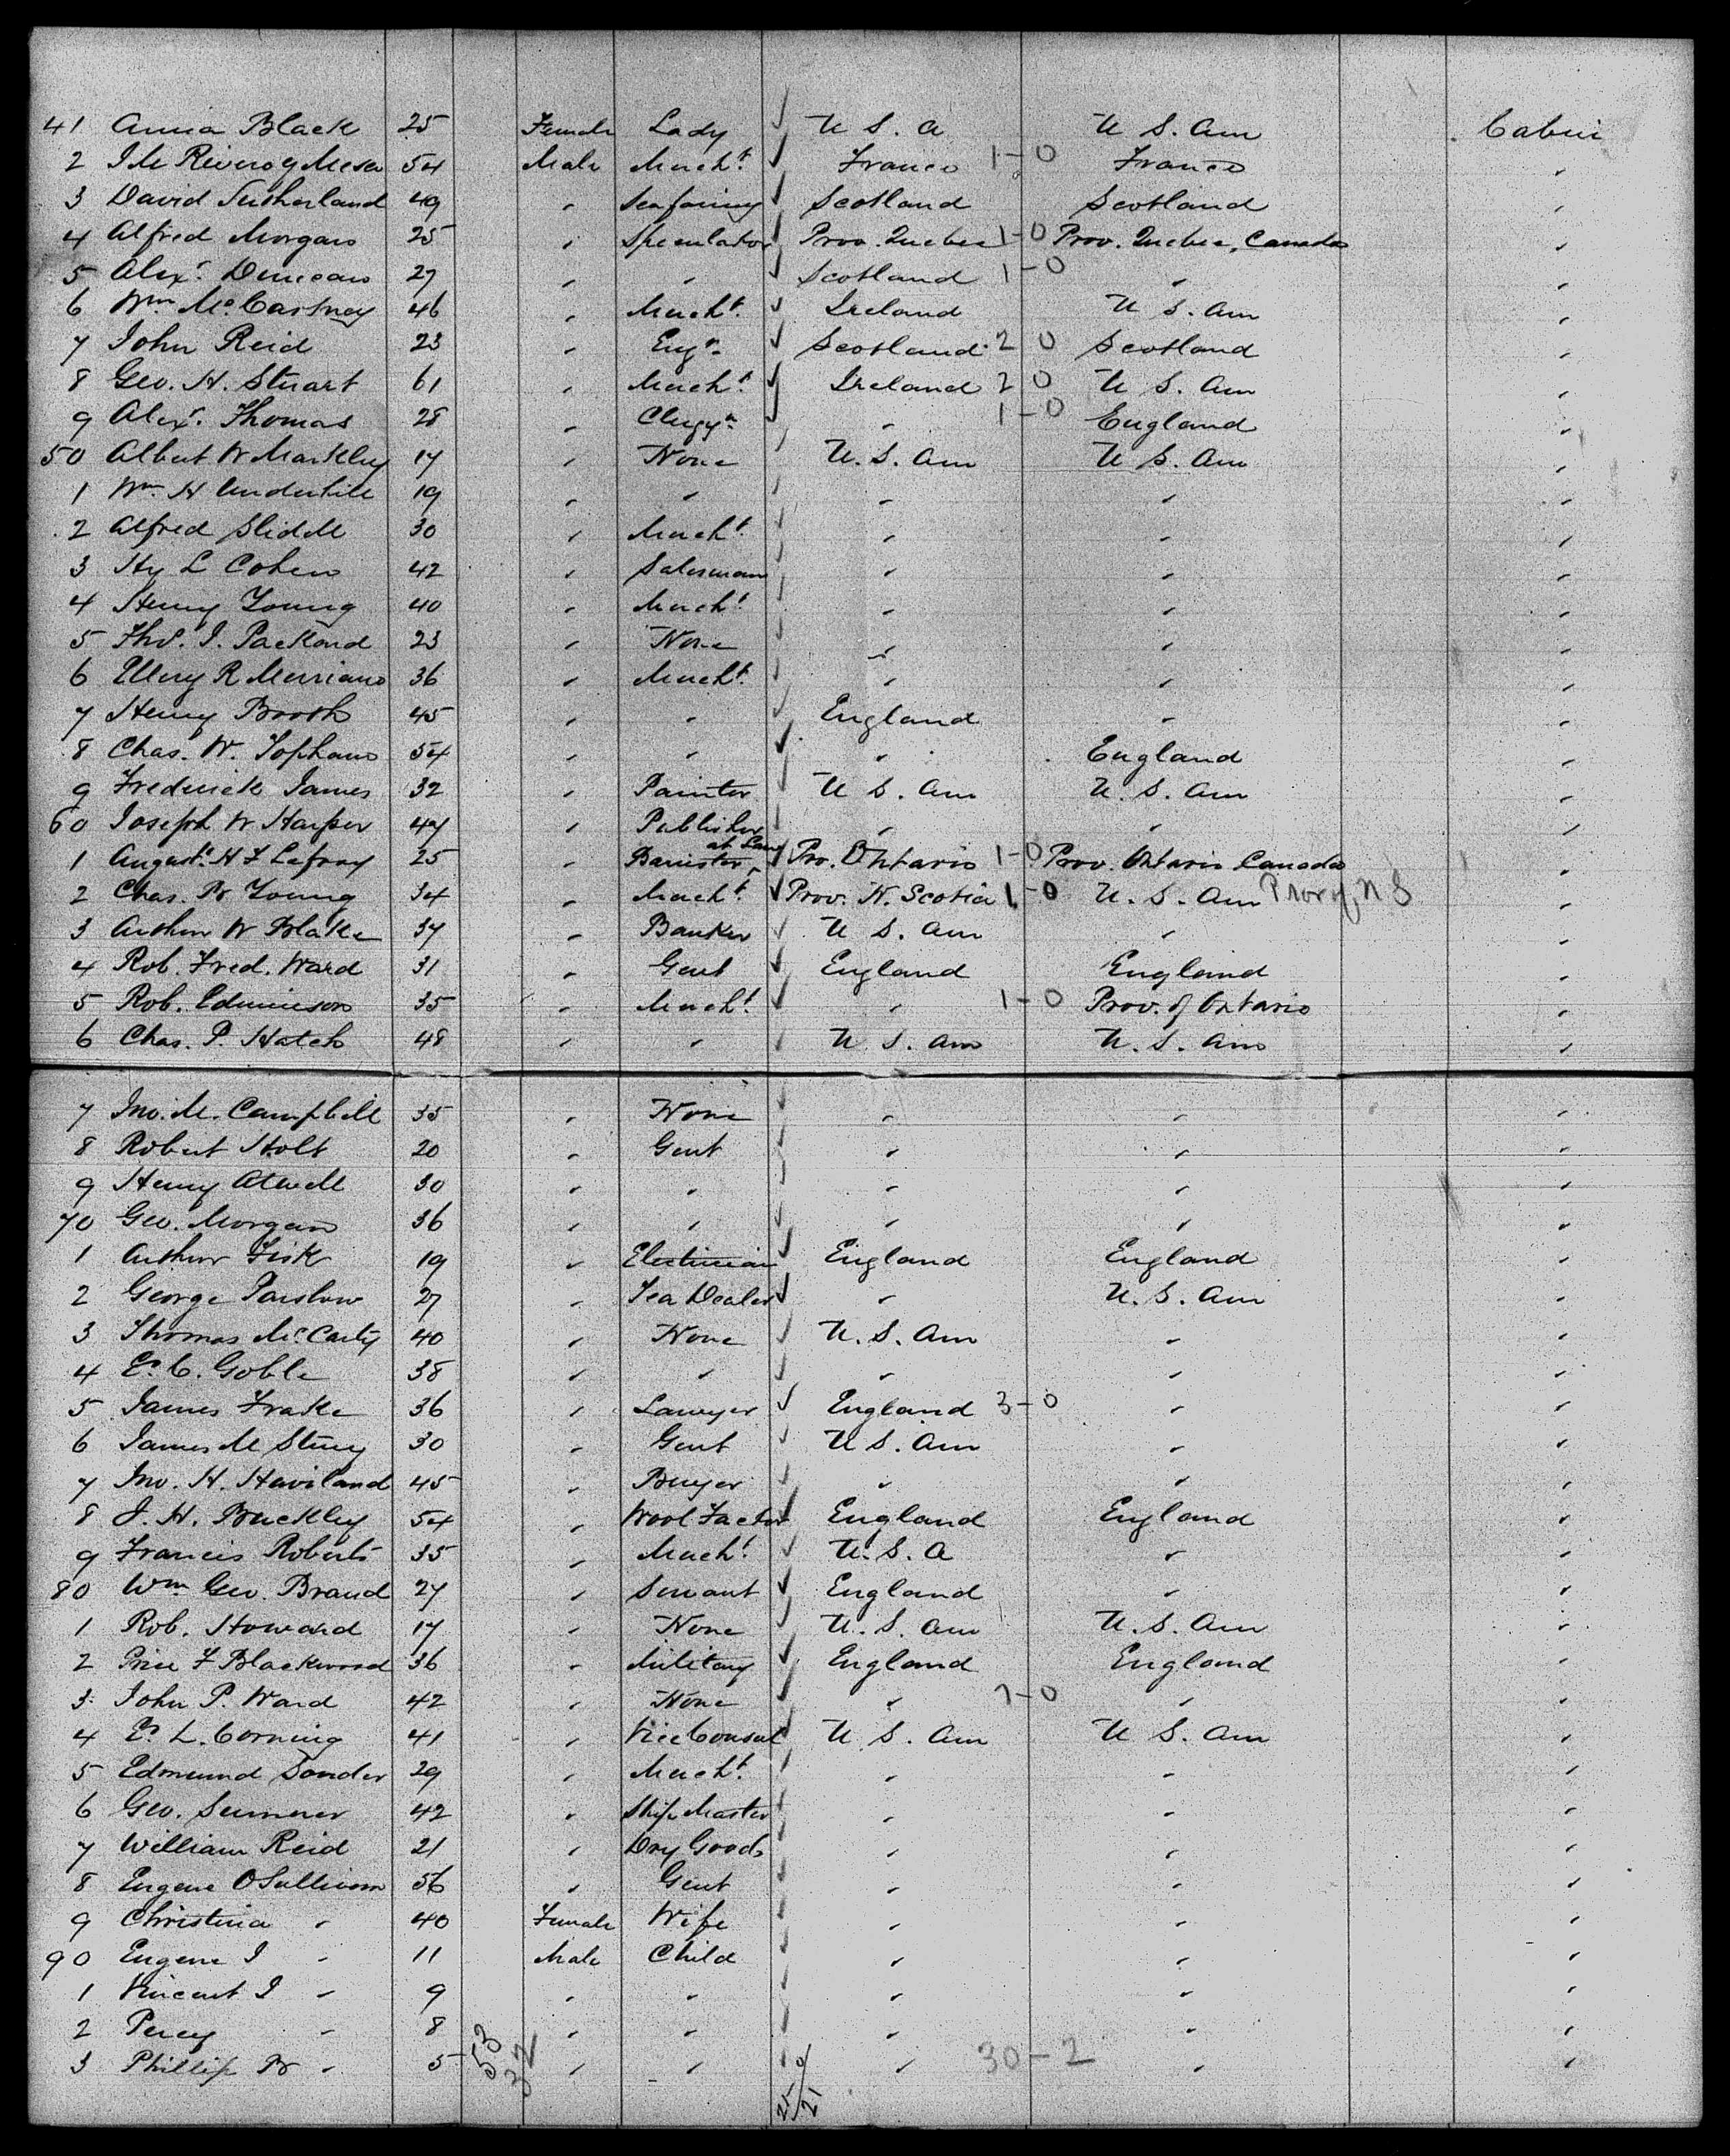 41 Anna Black 25 Female Lady U S. A U S. Am Cabin
2 54 Male Mercht. France 1-0 France "
3 David Sutherland 49 " Seafaring Scotland Scotland "
4 Alfred Morgan 25 " Speculator Prov. Quebec 1-0 Prov. Quebec, Canada "
5 Alexr. Duncan 27 " " Scotland 1-0 " "
6 Wm. McCartney 46 " Mercht. Ireland U S. Am "
7 John Reid 23 " Engr. Scotland 2 0 Scotland "
8 Geo. H. Stuart 61 " Mercht. Ireland 2 0 U S. Am "
9 Alexr. Thomas 28 " Clergyn. " 1-0 England "
50 Albert W Markley 17 " None U. S. Am U S. Am "
1 Wm. H Underhill 19 " " " " "
2 Alfred Slidell 30 " Mercht. " " "
3 Hy L Cohen 42 " Salesman " " "
4 Henry Young 40 " Mercht. " " "
5 Thos. I. Packard 23 " None " " "
6 Ellery R Merriam 36 " Mercht. " " "
7 Henry Booth 45 " " England " "
8 Chas. W. Topham 54 " " " England "
9 Frederick James 32 " Painter U S. Am U. S. Am "
60 Joseph W Harper 47 " Publisher " " "
1 H F Lefroy 25 " Barrister at Law Pro. Ontario 1-0 Prov. Ontario Canada "
2 Chas. B Young 34 " Mercht. Prov. N. Scotia 1-0 U. S. Am Prov of N S "
3 Arthur W Blake 37 " Banker U S. Am " "
4 Rob. Fred. Ward 31 " Gent England England "
5 Rob. 35 " Mercht. " 1-0 Prov. of Ontario "
6 Chas. P. Hatch 48 " " U S. Am U. S. Am "
7 Jno. M. Campbell 35 " None " " "
8 Robert Holt 20 " Gent " " "
9 Henry Atwell 30 " " " " "
70 Geo. Morgan 36 " " " " "
1 Arthur Fisk 19 " Electrician England England "
2 George Parslow 27 " Tea Dealer " U. S. Am "
3 Thomas McCarty 40 " None U. S. Am " "
4 E. C. Goble 38 " " " " "
5 James Frake 36 " Lawyer England 3-0 " "
6 James M 30 " Gent U S. Am " "
7 Jno. H. Haviland 45 " Buyer " " "
8 J. H. Buckley 54 " Wool Factor England England "
9 Francis Roberts 35 " Mercht. U. S. A " "
80 Wm Geo. Brand 27 " Servant England " "
1 Rob. Howard 17 " None U. S. Am U. S. Am "
2 Price F Blackwood 36 " Military England England "
3 John P. Ward 42 " None " 7-0 " "
4 E. L. Corning 41 " Vice Consul U S. Am U S. Am "
5 Edmund Sonder 29 " Mercht. " " "
6 Geo. Sumner 42 " Ship Master " " "
7 William Reid 21 " Dry Goods " " "
8 Eugene O Sullivan 56 " Gent " " "
9 Christina " 40 Female Wife " " "
90 Eugene I " 11 Male Child " " "
1 Vincent I " 9 " " " " "
2 Percy " 8 " " " " "
3 Phillip B " 5 " " " 30-2 " "
53
32